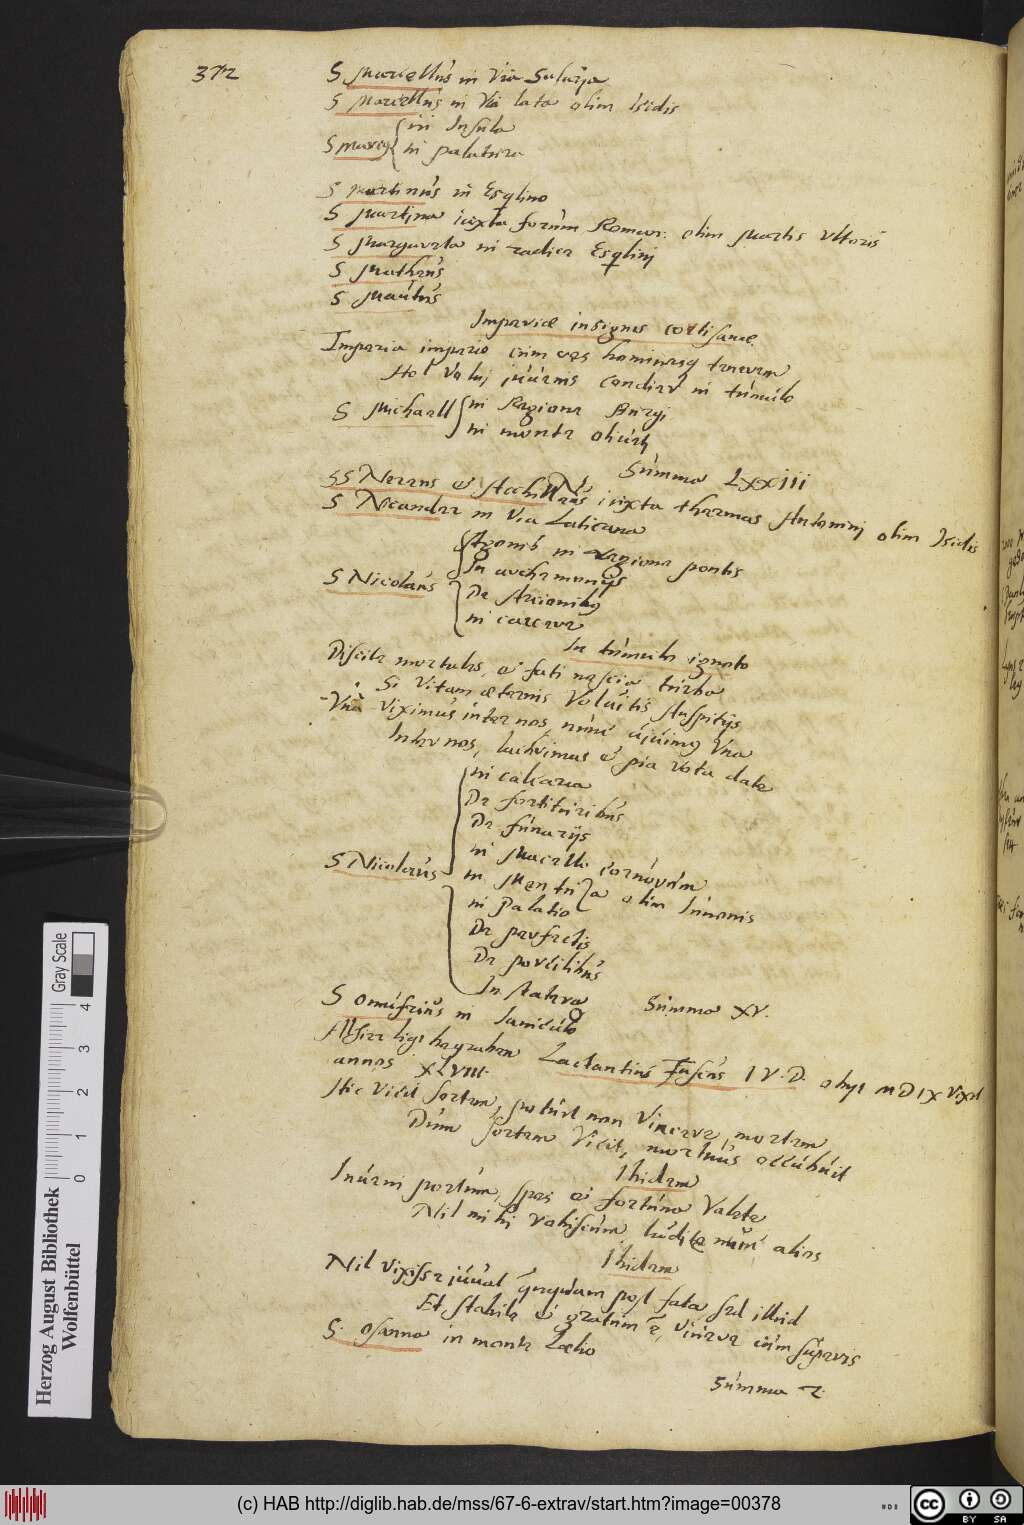 372
S Marcellus in Via Salaria
S Marcellus in Via lata olim Isidis
in Insula
S Maria
in palatura
S Martinus in Esqlino
S Martina iuxta forum Roman: olim Martis Vltoris
S Margareta in radice Esqlinj
S Matheus
S Mautus
Imperiæ insignes cortisanæ
Imperia imperio cum res hominesq tenerem
Hoc Voluj iuuenis condier in tumulo
in Regione Burgi
S Michaell
in monte
Summa LXXIII
SS Nereus et Archilleus iuxta thermas Antoninj olim Isidis
S Nicander in Via Laticana
in regione pontis
In archemonijs
S Nicolaus
De Arcionibq
in carcere
In tumulo ignoto
Discite mortales, et fati nescia turba
Si Vitam æternis Voluitis Auspitijs
Vna Viximus inter nos, nunc Vna
Inter nos, lachrimas et pia vota date
in calcaria
De fortituiribus
De funarijs
in Macello coruorum
S Nicolaus
in Mentuza olim Iunonis
in Palatio
De prefectis
De porcilibus
In statera
Summa XV.
S Onufrius in Ianiculo
Lactantius Fuscus I V. D. obyt MDIX Vixit
annos XLVIII.
Hic vicit sortem, potuit non Vincere mortem
Dum sortem Vicit, mortuus occubuit
Ibidem
Inueni portum, spes et fortuna Valete
Nil mihi vobiscum, ludite nunc alios
Ibidem
Nil vixisse iuuat quequam post fata sed illud
Et stabile et gratum e, Viuere cum superis
S. Osanna in monte Lælio
Summa 2.
Herzog August Bibliothek
Wolfenbüttel
Gray Scale
0 1 2 3 4
(c) HAB http://diglib.hab.de/mss/67-6-extrav/start.htm?image=00378
cc BY SA